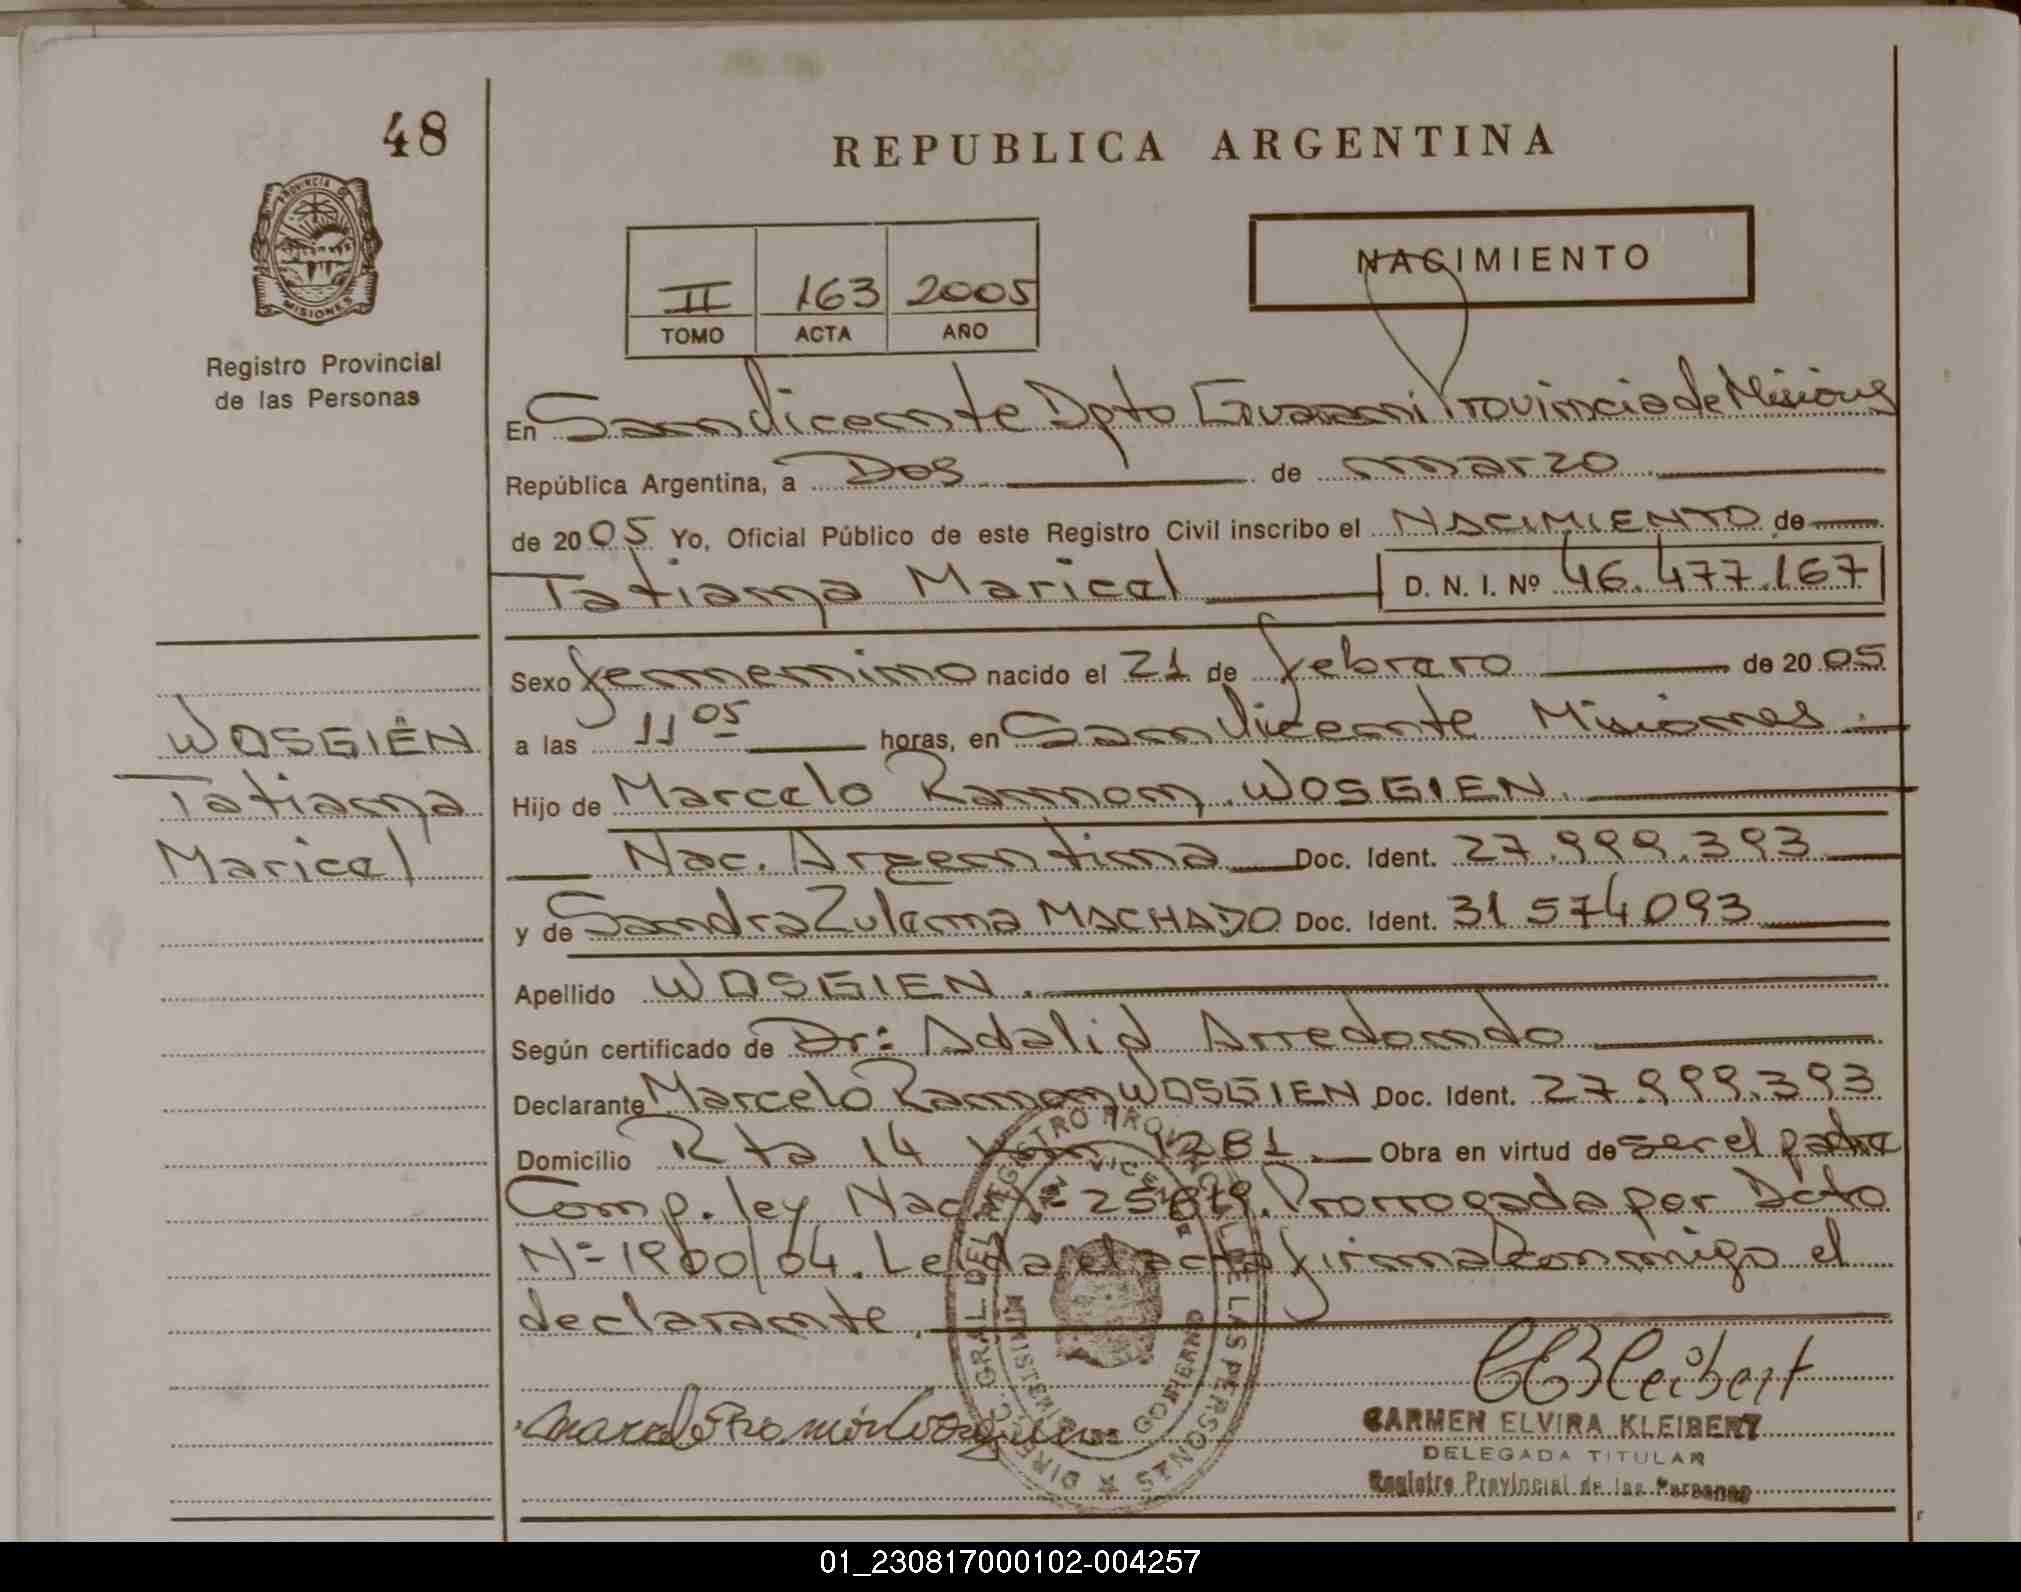 48
REPUBLICA ARGENTINA
PROVINCIA DE
MISIONES
NACIMIENTO
II 163 2005
TOMO ACTA AÑO
Registro Provincial
de las Personas
En San Vicente Dpto Guarani Provincia de Misiones
República Argentina, a Dos de marzo
de 2005 Yo, Oficial Público de este Registro Civil inscribo el NACIMIENTO de
Tatiana Maricel D. N. I. Nº 46.477.167
Sexo femenino nacido el 21 de febrero de 2005
WOSGIEN
a las 11 05 horas, en San Vicente Misiones
Tatiana
Hijo de Marcelo Ramon WOSGIEN
Maricel
Nac. Argentina Doc. Ident. 27.999.393
y de Sandra Zulema MACHADO Doc. Ident. 31 574093
Apellido WOSGIEN
Según certificado de Dr: Adalid Arredondo
Declarante Marcelo Ramon WOSGIEN Doc. Ident. 27.999.393
Domicilio Rta 14 Km 1281 Obra en virtud de ser el padre
Comp. ley Nac Nº 25819. Prorrogada por Dcto
Nº 1900/04. Leida el acta firma conmigo el
declarante.
DIREC. GRAL. DEL REGISTRO PROVINCIAL DE LAS PERSONAS
MINISTERIO DE GOBIERNO
CARMEN ELVIRA KLEIBERT
DELEGADA TITULAR
Registro Provincial de las Personas
01_230817000102-004257